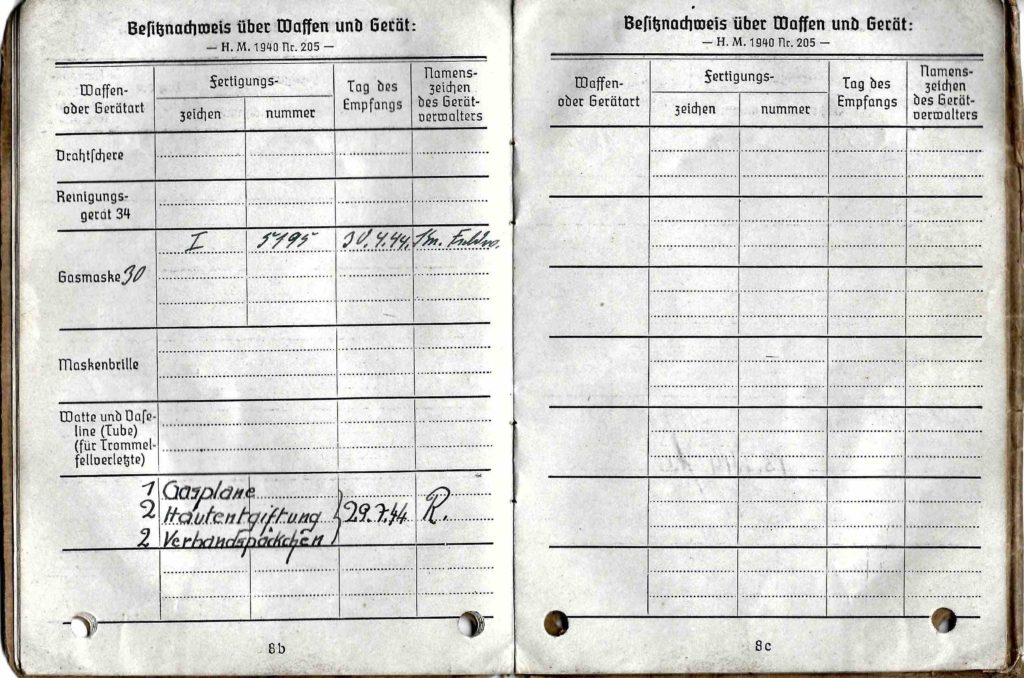 Besitznachweis über Waffen und Gerät:
— H. M. 1940 Nr. 205 —
Waffen-
oder Gerätart
Fertigungs-
zeichen
nummer
Tag des
Empfangs
Namens-
zeichen
des Gerät-
verwalters
Drahtschere
Reinigungs-
gerät 34
Gasmaske 30 I 5195 30.4.44.
Maskenbrille
Watte und Vase-
line (Tube)
(für Trommel-
fellverletzte)
1 Gasplane
2 Hautentgiftung 29.7.44 R.
2 Verbandspäckchen
8b
Besitznachweis über Waffen und Gerät:
— H. M. 1940 Nr. 205 —
Waffen-
oder Gerätart
Fertigungs-
zeichen
nummer
Tag des
Empfangs
Namens-
zeichen
des Gerät-
verwalters
8c